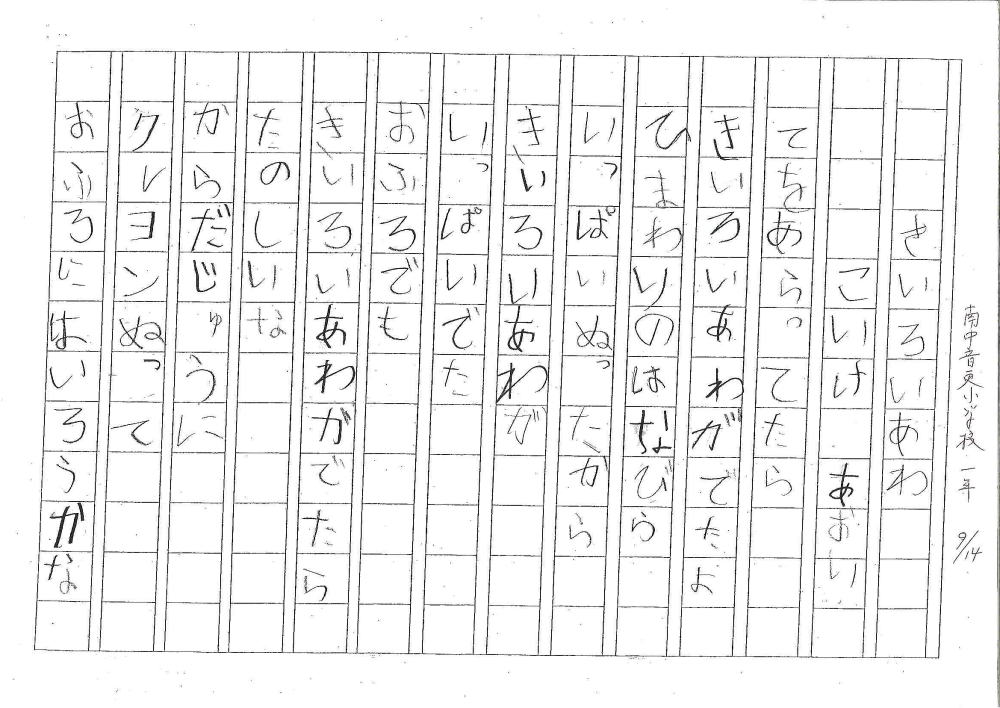 南中音更小学校 一年 9/14
きいろいあわ
こいけ あおい
てをあらってたら
きいろいあわがでたよ
ひまわりのはなびら
いっぱいぬったから
きいろいあわが
いっぱいでた
おふろでも
きいろいあわがでたら
たのしいな
からだじゅうに
クレヨンぬって
おふろにはいろうかな